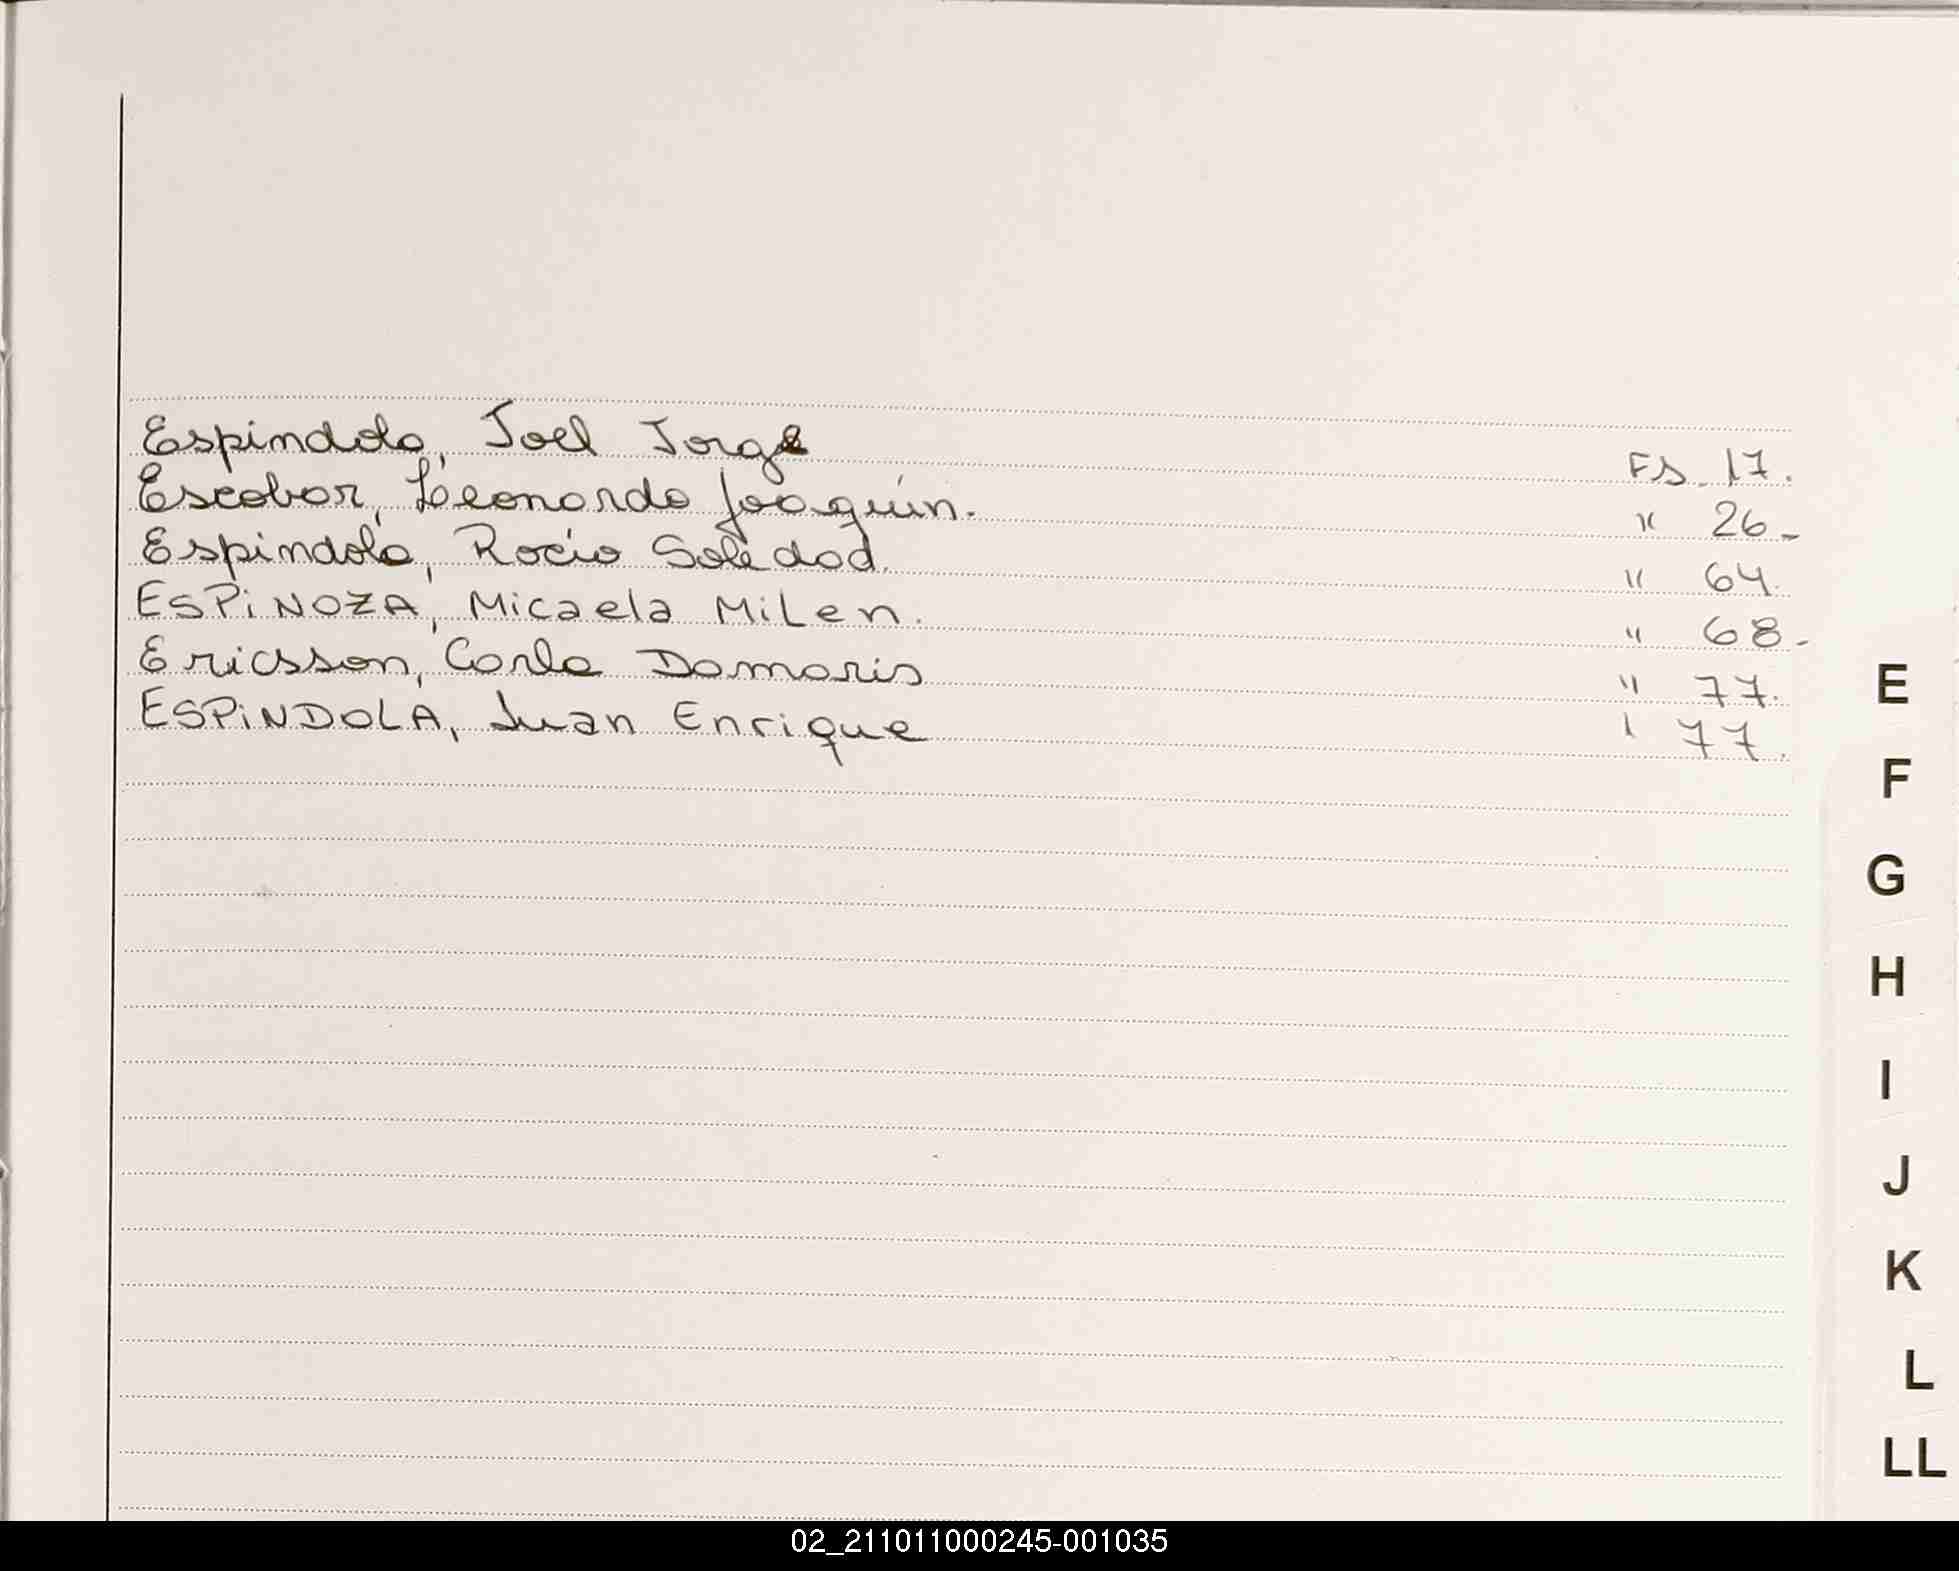 Espindola, Joel Jorge FS. 17.
Escobar, Leonardo Joaquín. " 26-
Espindola, Rocío Soledad. " 64.
ESPiNOZA, Micaela MiLen. " 68-
Ericsson, Carla Damaris " 77.
ESPiNDOLA, Juan Enrique ' 77.
E
F
G
H
I
J
K
L
LL
02_211011000245-001035